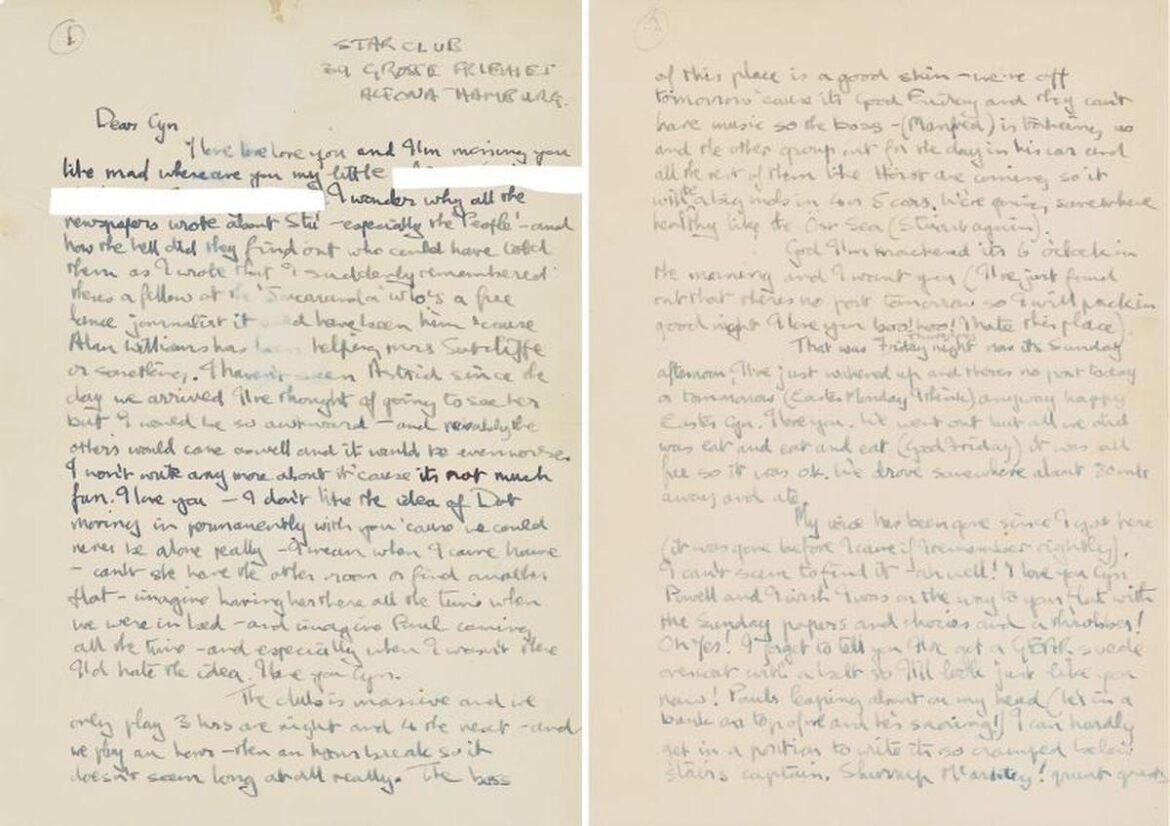 1
STAR CLUB
39 GROSSE FREIHEIT
ALTONA HAMBURG.
Dear Cyn
I love love love you and I'm missing you
like mad where are you my little
I wonder why all the
newspapers wrote about Stu – especially the 'People' – and
how the hell did they find out who could have told
them as I wrote that I suddenly remembered
theres a fellow at the 'Jacaranda' who's a free
lance journalist it have been him 'cause
Alan Williams has been helping mrs Sutcliffe
or something. I haven't seen Astrid since the
day we arrived I've thought of going to see her
but I would be so awkward – and probably the
others would come aswell and it would be even worse.
I won't write any more about it 'cause its not much
fun. I love you – I don't like the idea of Dot
moving in permanently with you 'cause we could
never be alone really – I mean when I come home
– can't she have the other room or find another
flat – imagine having her there all the time when
we were in bed – and imagine Paul coming
all the time – and especially when I wasn't there
I'd hate the idea. I love you Cyn.
The club is massive and we
only play 3 hrs one night and 4 the next – and
we play an hour – then an hours break so it
doesn't seem long at all really. The boss
of this place is a good skin – we're off
tomorrow 'cause its Good Friday and they can't
have music so the boss – (Manfred) is taking us
and the other group out for the day in his car and
all the rest of them like Horst are coming so it
will be a big mob in 4 or 5 cars. We're going somewhere
healthy like the Ost Sea (Stuirb again).
God I'm knackered its 6 o'clock in
the morning and I want you (I've just found
out that there's no post tomorrow so I will pack in
good night I love you boo! hoo! I hate this place).
That was Friday night now its Sunday
afternoon, I've just wakened up and theres no post today
or tomorrow (Easter Monday I think) anyway happy
Easter Cyn. I love you. We went out but all we did
was eat and eat and eat (Good Friday) it was all
free so it was ok. We drove somewhere about 30 mls
away and ate.
My voice has been gone since I got here
(it was gone before I came if I remember rightly).
I can't seem to find it – ah well! I love you Cyn
Powell and I wish I was on the way to your flat with
the Sunday papers and choccies and a throbber!
Oh Yes! I forgot to tell you I've got a GEAR suede
overcoat with a belt so I'll look just like you
now! Pauls leaping about on my head (he's in a
bunk on top of me and he's snoring!) I can hardly
get in a position to write its so cramped below
stairs captain. Shurrup Mcartey! grunt grunt